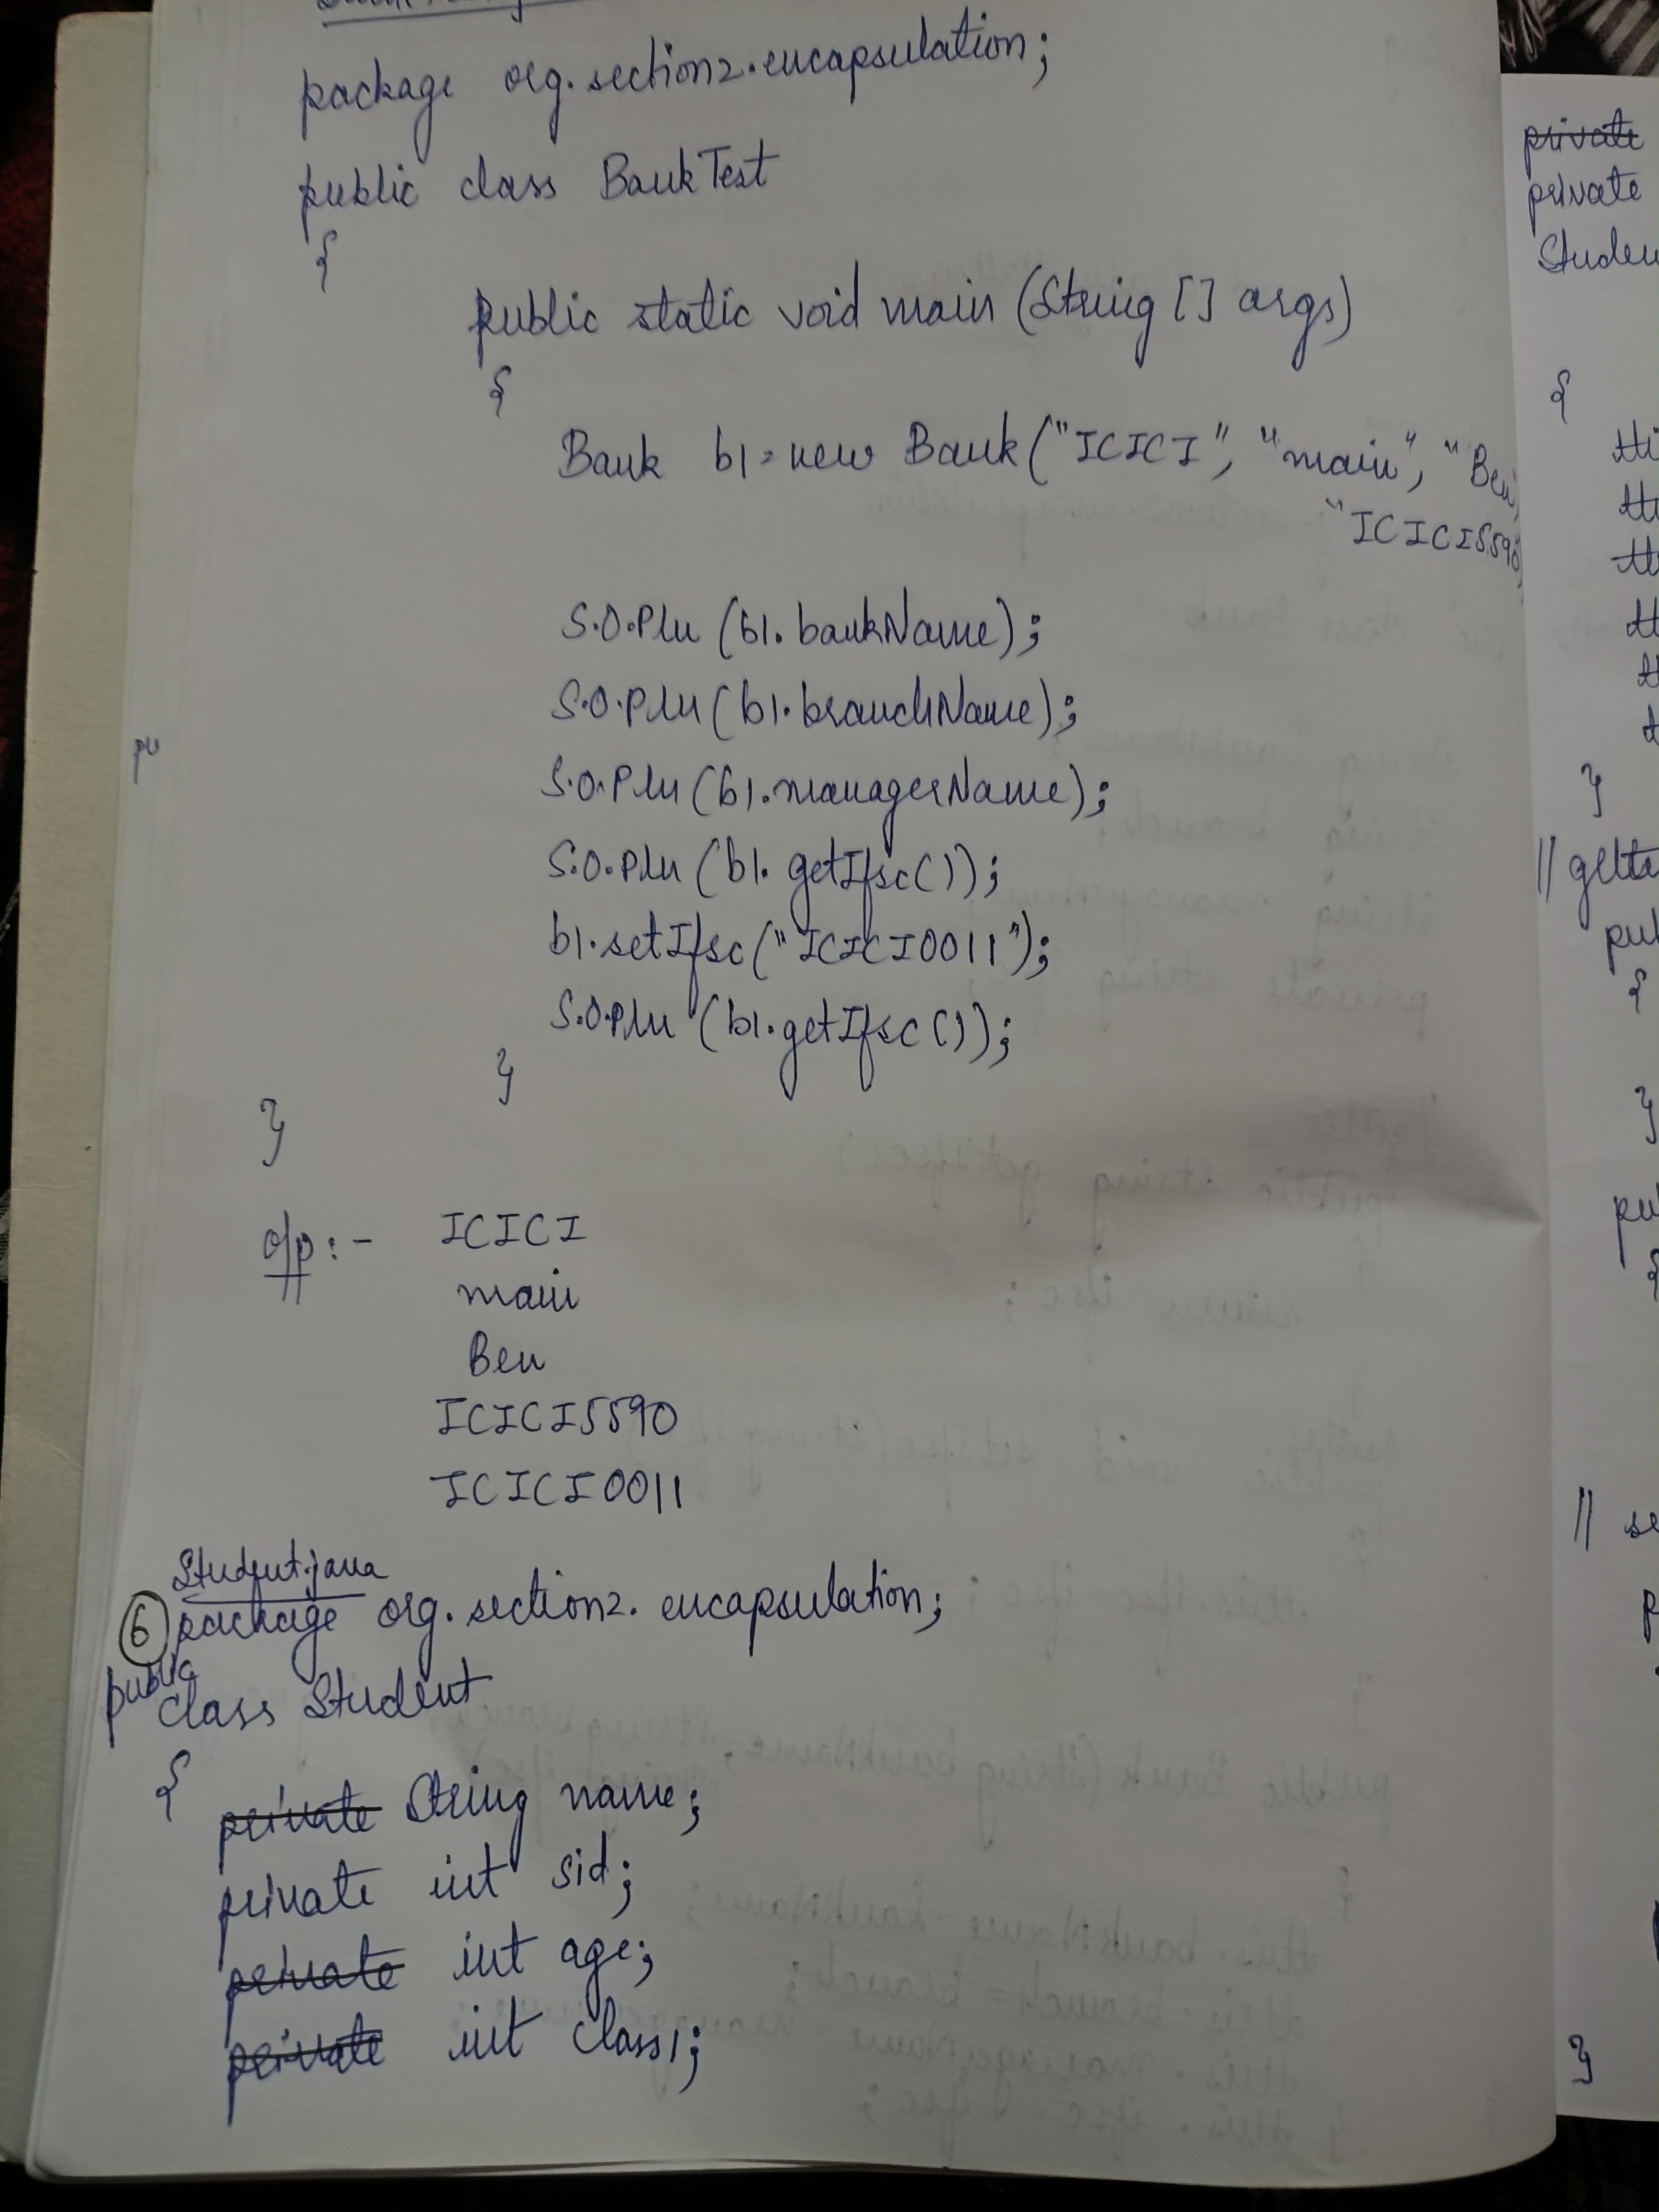 package org.section2.encapsulation;
public class BankTest
{
public static void main (String [] args)
{
Bank b1 = new Bank ("ICICI", "main", "Ben,
"ICICI5590,
S.O.Pln (b1.bankName);
S.O.Pln (b1.branchName);
S.O.Pln (b1.managerName);
S.O.Pln (b1.getIfsc());
b1.setIfsc("ICICI0011");
S.O.Pln (b1.getIfsc());
}
}
pu
o/p :- ICICI
main
Ben
ICICI5590
ICICI0011
Student.java
6 package org.section2.encapsulation;
public
class Student
{
private String name;
private int sid;
private int age;
private int class1;
private
private
Studen
{
thi
th
th
th
th
t
}
// gette
pub
{
}
pu
{
// se
p
}